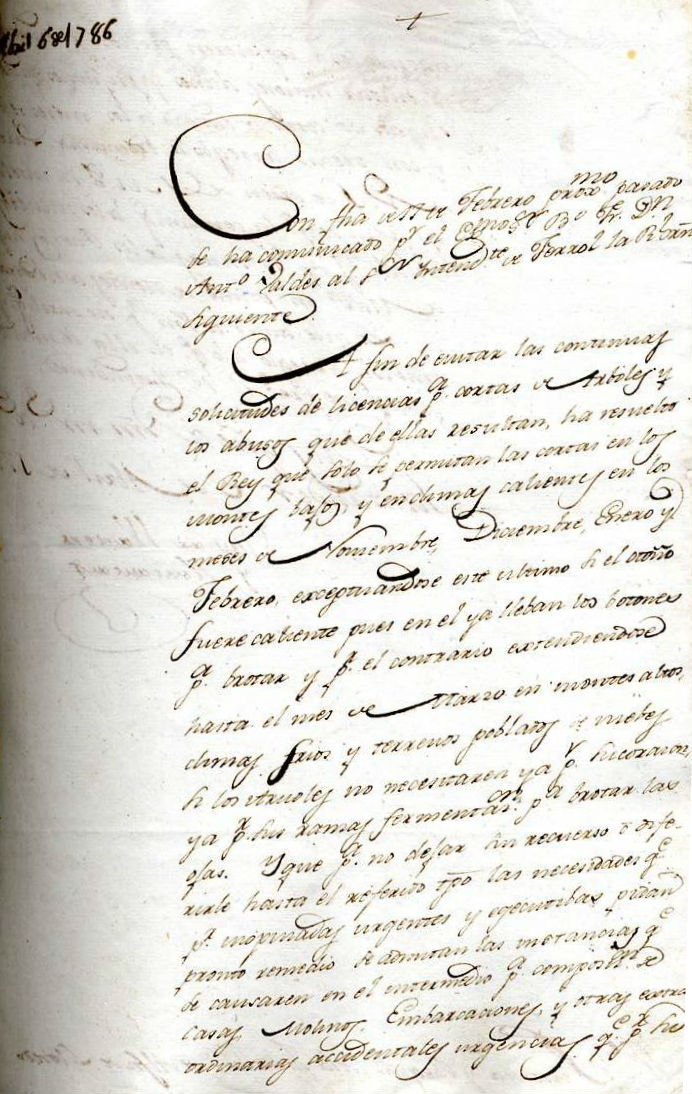 +
Abril 6 de 1786
Con fha de 11 de Febrero proxmo pasado
se ha comunicado pr el Exmo Sr Bo Fr. Dn
Anto Valdes al Sr Intendte de Ferrol la Rl Orn
siguiente.
A fin de evitar las continuas
solicitudes de licencias pa cortas de Arboles y
los abusos que de ellas resultan, ha resuelto
el Rey que solo se permitan las cortas en los
montes bajos, y en climas calientes en los
meses de Noviembre, Diciembre, Enero y
Febrero, exceptuandose este ultimo si el otoño
fuere caliente pues en el ya lleban los botones
pa brotar y pr el contrario extendiendose
hasta el mes de Marzo en montes altos,
climas frios y terrenos poblados de niebes
si los Arboles no necesitaren ya pr su corazon,
ya pr sus ramas fermentacn pa brotar las
ojas. Y que pa no dejar sin recurso ó dife-
rirle hasta el referido tpo las necesidades qe
pr inopinadas urgentes y egecutibas pidan
pronto remedio se admitan las instancias qe
se causaren en el intermedio pa composn de
casas, Molinos, Embarcaciones, y otras extra
ordinarias accidentales urgencias, qe pr su